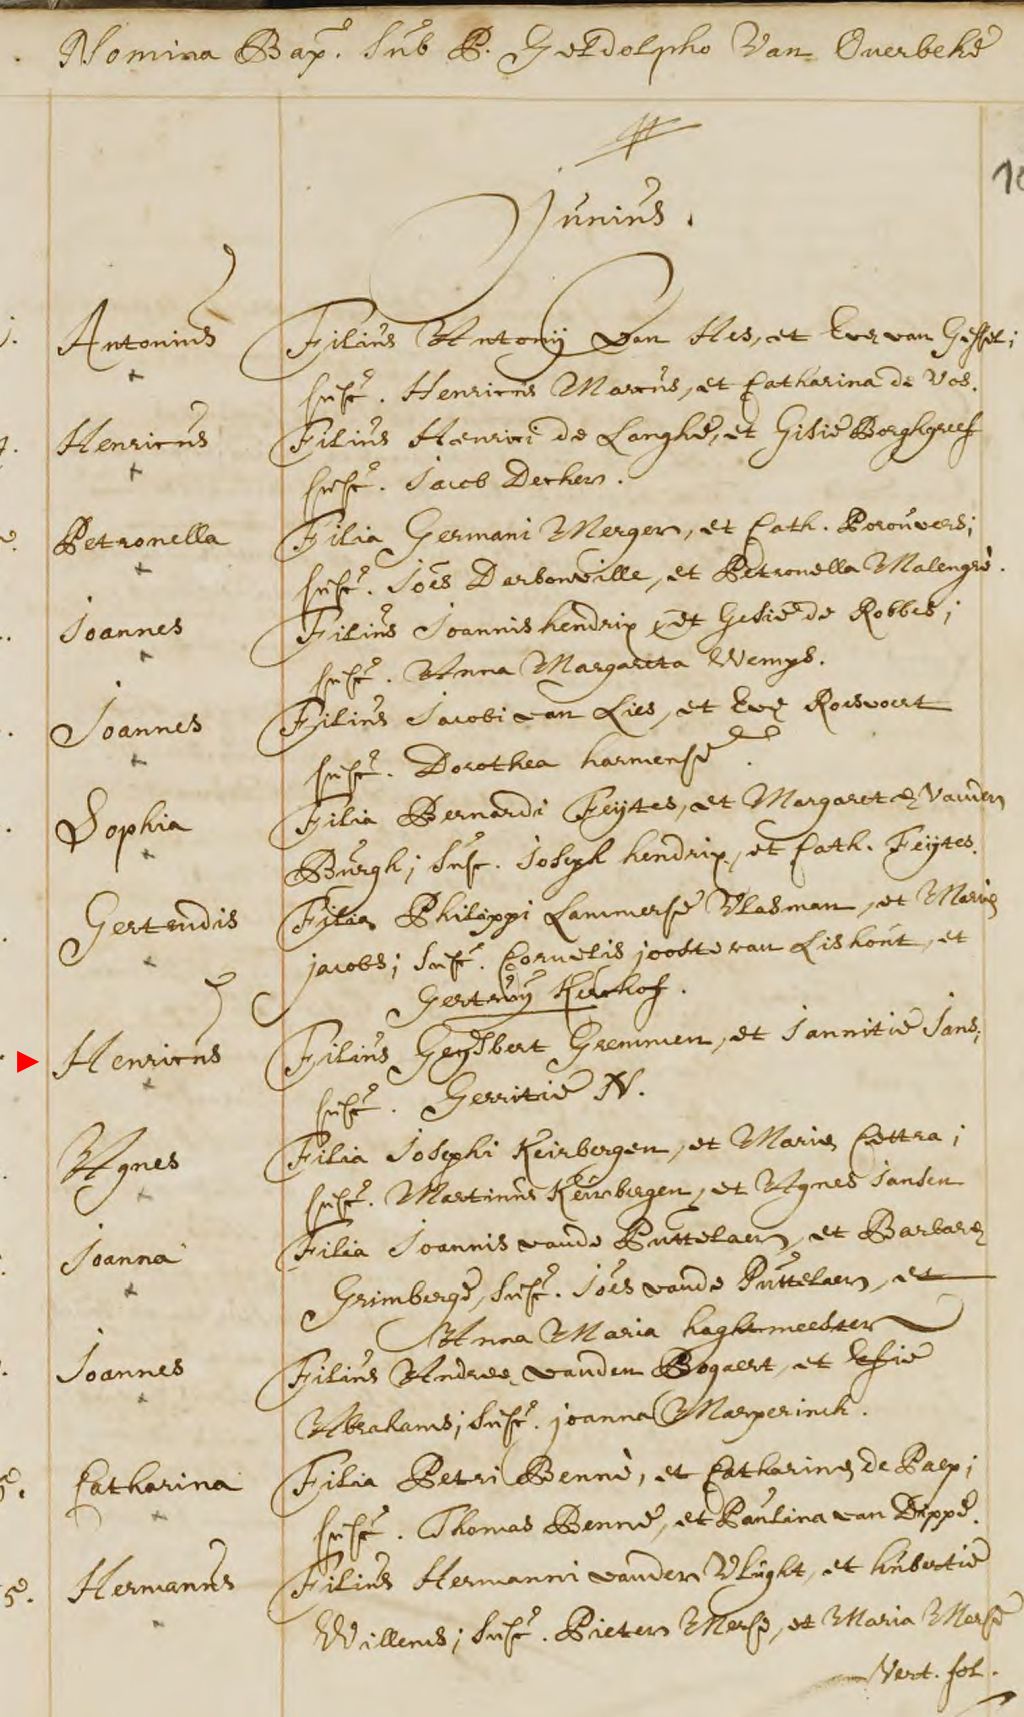 Nomina Bap. sub P. Geldolpho Van Overbeke
10
Junius.
Antonius Filius Antonij van Hes, et Evæ van Gessel;
susc. Henricus Marcus, et Catharina de Vos.
Henricus Filius Henrici de Langhe, et Gisie Borghgreef
susc. Jacob Deckers.
Petronella Filia Germani Mergen, et Cath. Porouwers;
susc. Joes Darbonville, et Petronella Malengrè.
Joannes Filius Joannis hendrix, et Gesie de Robbes;
susc. Anna Margareta Wemijs.
Joannes Filius Jacobi van Lies, et Evæ Roesvoert
susc. Dorothea harmense.
Sophia Filia Bernardi Feijtes, et Margaretæ Vanden
Burgh; susc. Joseph hendrix, et Cath. Feijtes.
Gertrudis Filia Philippi Lammerse Vlasman, et Mariæ
jacobs; susc. Cornelis jooste van Lishout, et
Gertruij Kerkhof.
Henricus Filius Geijsbert Gremmen, et Jannitie Jans;
susc. Gerritie N.
Agnes Filia Josephi Keirbergen, et Mariæ Cettra;
susc. Martinus Keirbergen, et Agnes Jansen
Joanna Filia Joannis vande Puttelaer, et Barbaræ
Grimberge, susc. Joes vande Puttelaer, et
Anna Maria haghtmeester
Joannes Filius Andreæ vanden Bogaert, et Efsie
Abrahams; susc. joanna Marperinck.
5. Catharina Filia Petri Bennè, et Catharinæ de Paep;
susc. Thomas Benne, et Paulina van Dippe.
5. Hermanus Filius Hermanni vander Vlught, et hubertie
Willems; susc. Pieter Merse, et Maria Merse
Vert. fol.